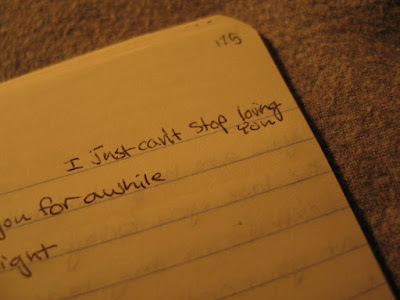 175
I just can't stop loving
you
you for awhile
ight